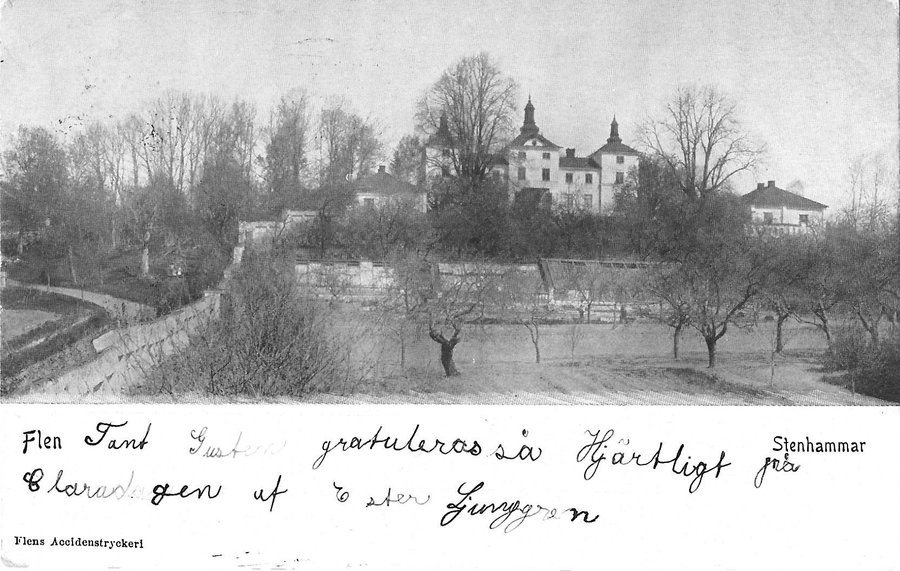 Flen Tant Gusten gratuleras så Hjärtligt på Stenhammar
Claradagen af Ester Ljunggren
Flens Accidenstryckeri